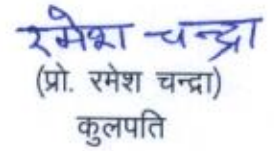 रमेश चन्द्रा
(प्रो. रमेश चन्द्रा)
कुलपति